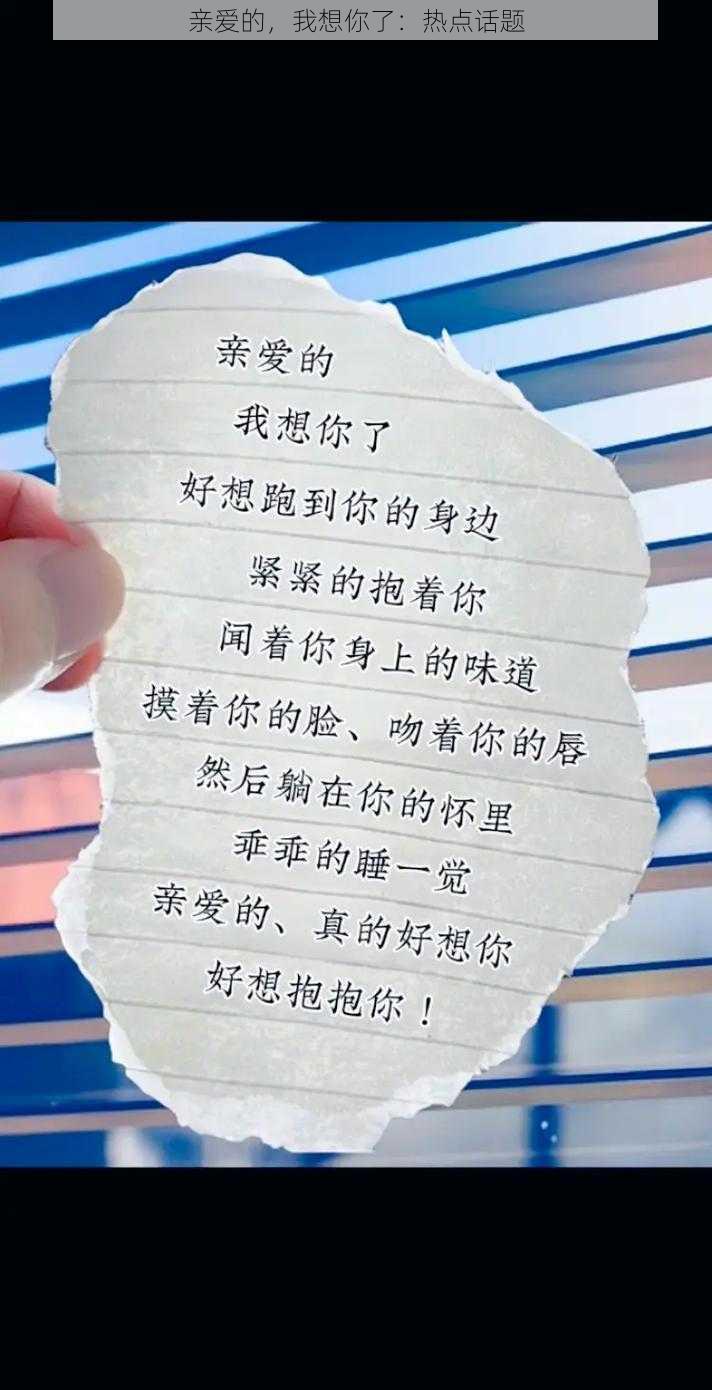 亲爱的，我想你了：热点话题
亲爱的
我想你了
好想跑到你的身边
紧紧的抱着你
闻着你身上的味道
摸着你的脸、吻着你的唇
然后躺在你的怀里
乖乖的睡一觉
亲爱的、真的好想你
好想抱抱你！